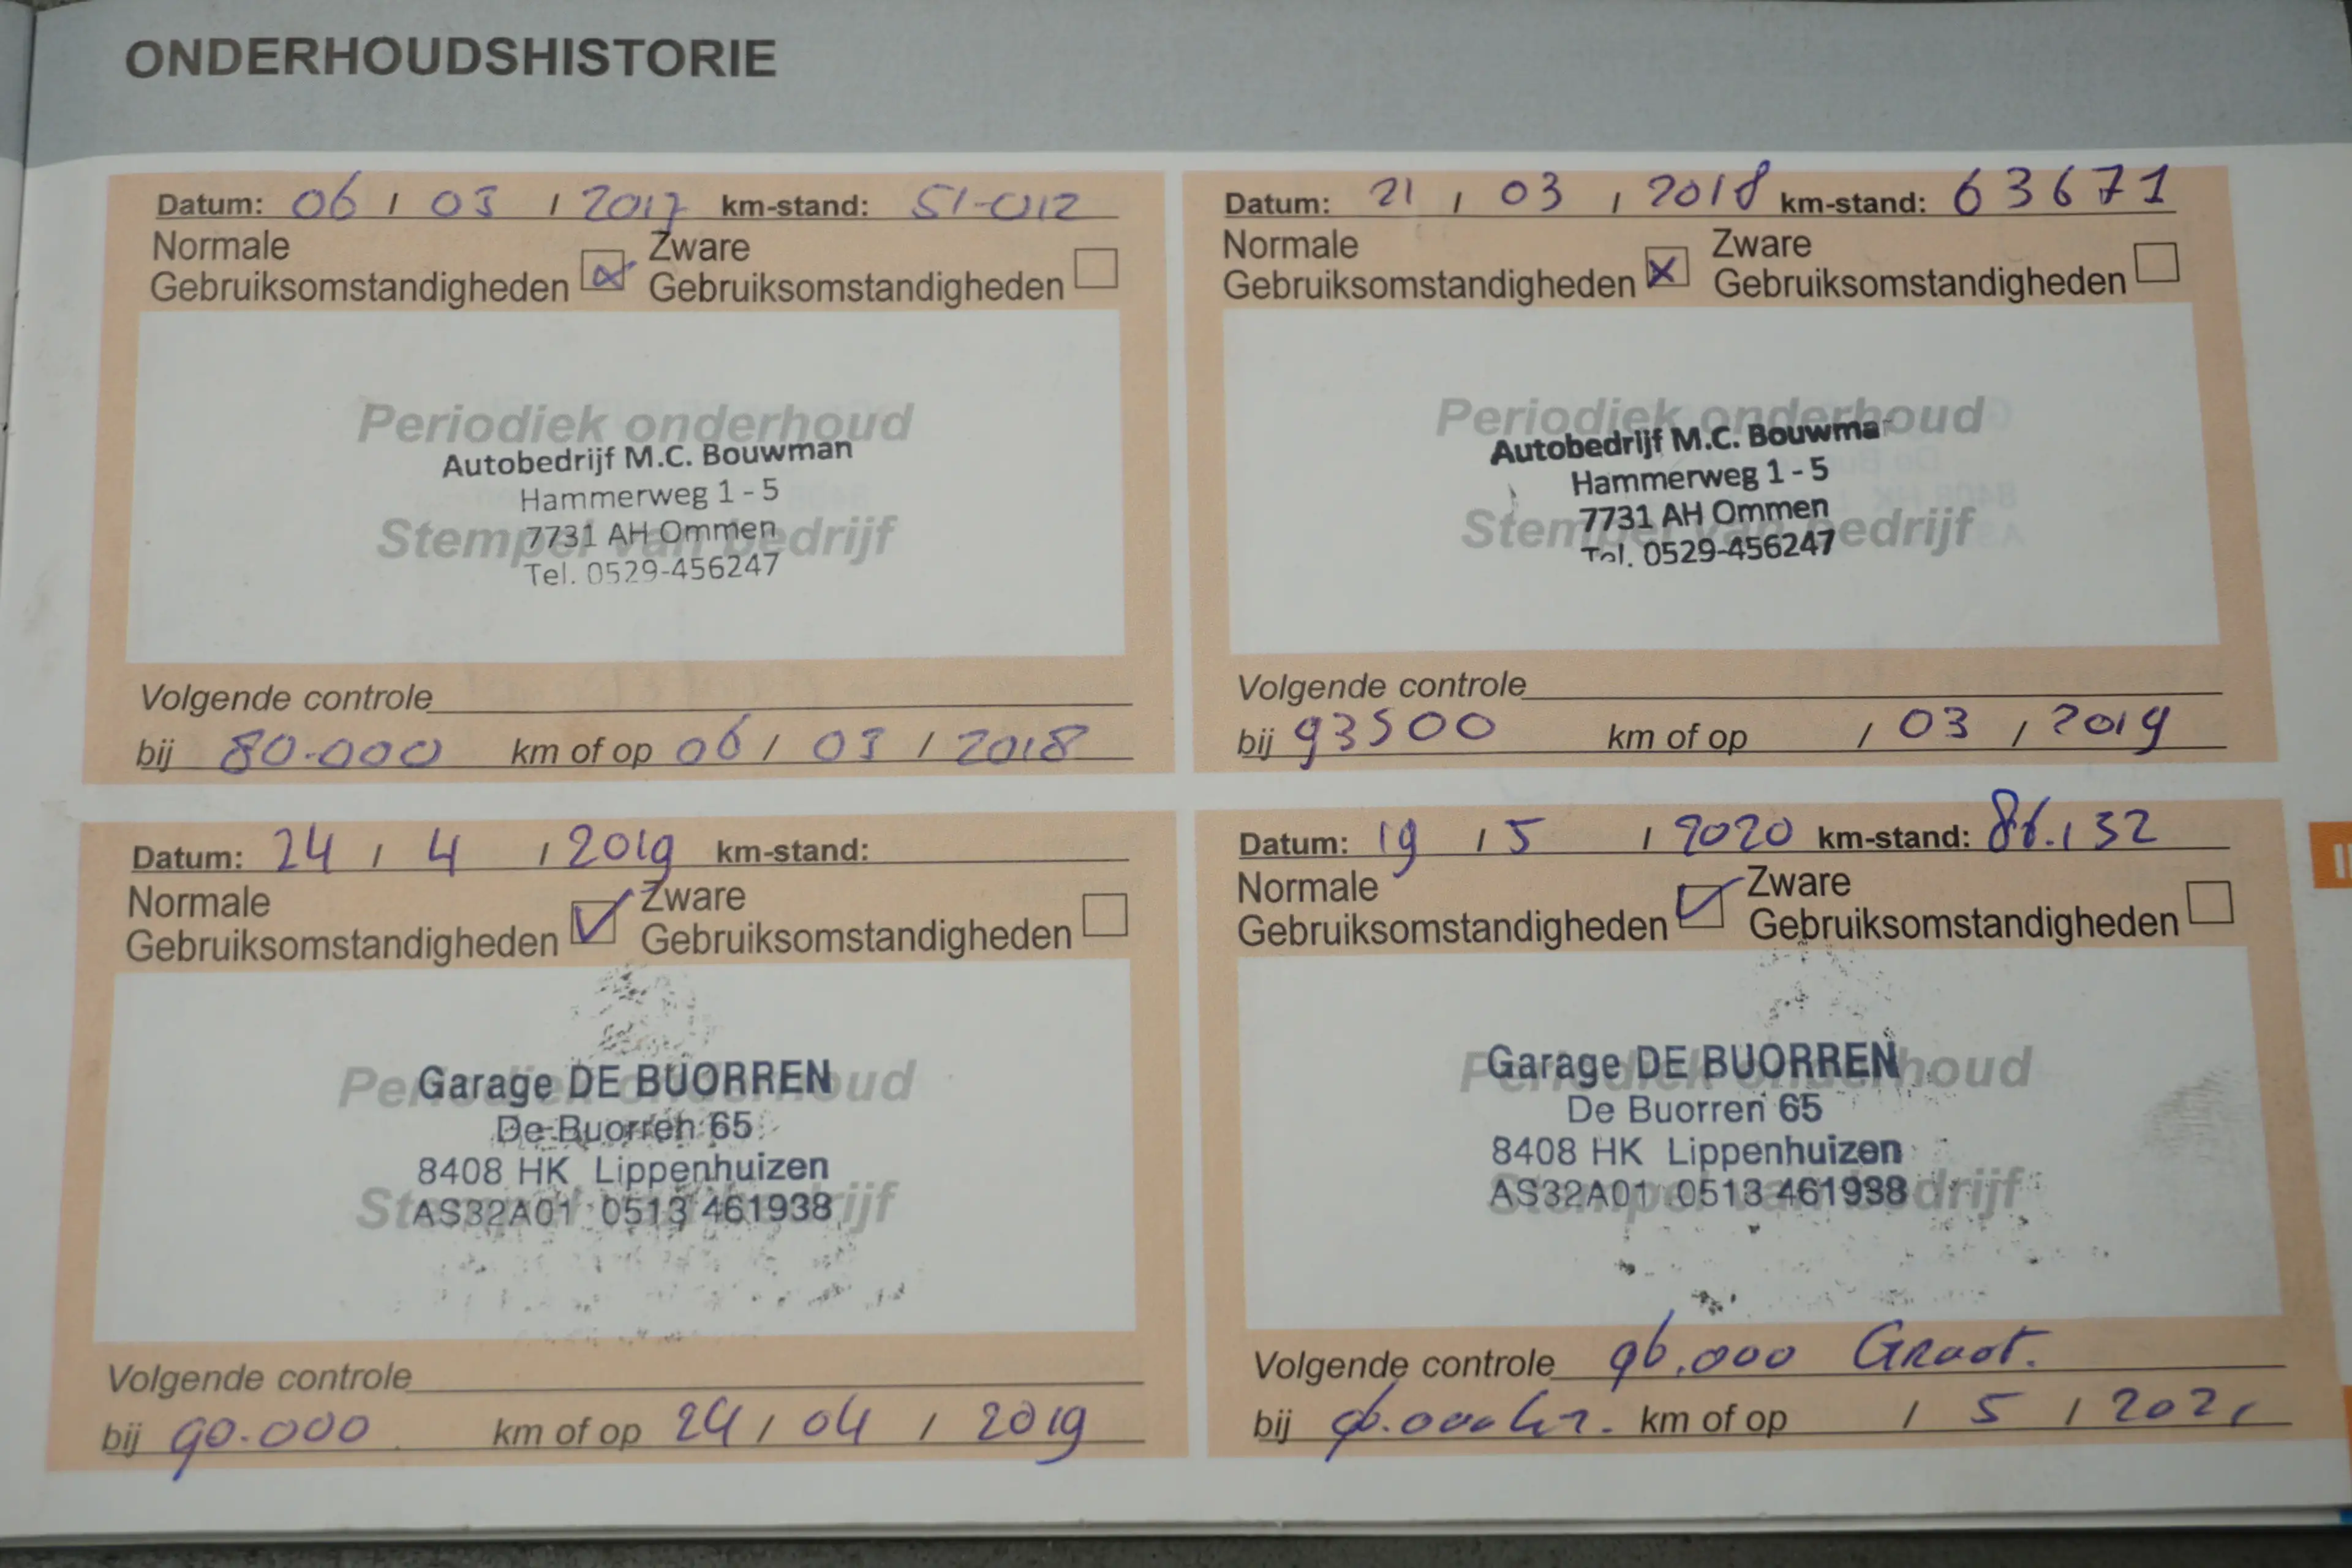 ONDERHOUDSHISTORIE
Datum: 06 / 03 / 2017 km-stand: 51-012
Normale Gebruiksomstandigheden Zware Gebruiksomstandigheden
Periodiek onderhoud
Autobedrijf M.C. Bouwman
Hammerweg 1 - 5
7731 AH Ommen
Stempel van bedrijf
Tel. 0529-456247
Volgende controle
bij 80.000 km of op 06 / 03 / 2018
Datum: 21 / 03 / 2018 km-stand: 63671
Normale Gebruiksomstandigheden Zware Gebruiksomstandigheden
Periodiek onderhoud
Autobedrijf M.C. Bouwma
Hammerweg 1 - 5
7731 AH Ommen
Stempel van bedrijf
Tel. 0529-456247
Volgende controle
bij 93500 km of op / 03 / 2019
Datum: 24 / 4 / 2019 km-stand:
Normale Gebruiksomstandigheden Zware Gebruiksomstandigheden
Periodiek onderhoud
Garage DE BUORREN
De Buorren 65
8408 HK Lippenhuizen
Stempel van bedrijf
AS32A01 0513 461938
Volgende controle
bij 90.000 km of op 24 / 04 / 2019
Datum: 19 / 5 / 2020 km-stand: 86.132
Normale Gebruiksomstandigheden Zware Gebruiksomstandigheden
Periodiek onderhoud
Garage DE BUORREN
De Buorren 65
8408 HK Lippenhuizen
Stempel van bedrijf
AS32A01 0513 461938
Volgende controle 96.000 Groot.
bij km of op / 5 / 2021